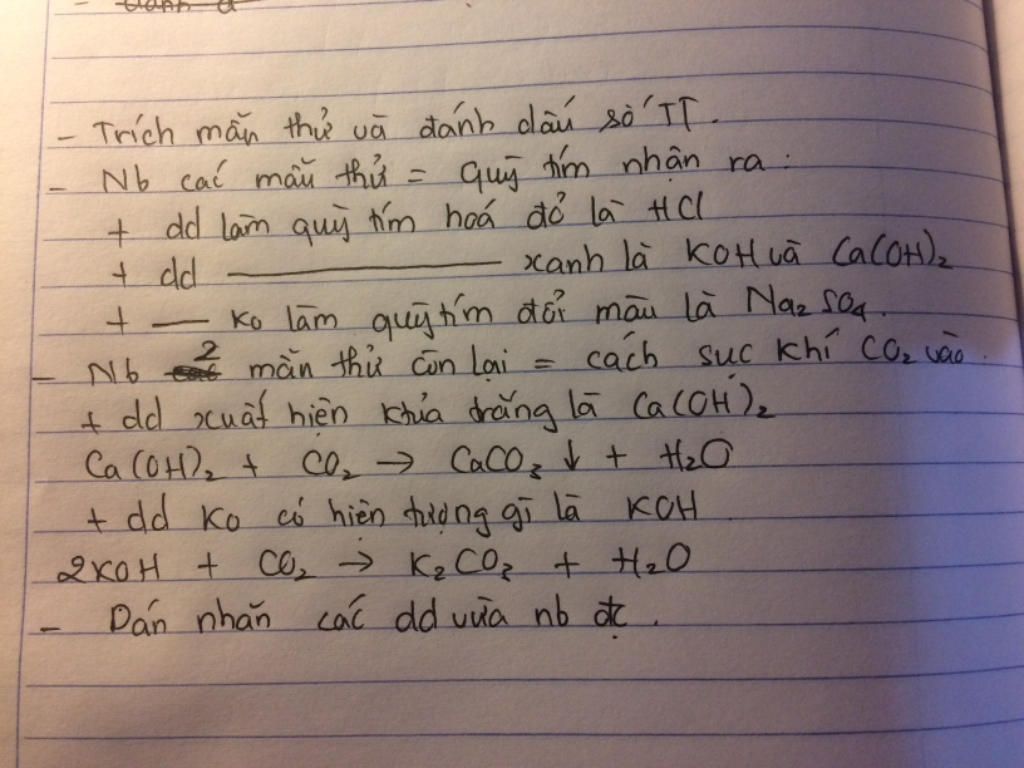 - Trích mẫu thử và đánh dấu số TT.
- Nb các mẫu thử = quỳ tím nhận ra :
+ dd làm quỳ tím hoá đỏ là HCl
+ dd ——— xanh là KOH và Ca(OH)₂
+ — ko làm quỳ tím đổi màu là Na₂SO₄.
- Nb 2 mẫu thử còn lại = cách sục khí CO₂ vào.
+ dd xuất hiện ktủa trắng là Ca(OH)₂
Ca(OH)₂ + CO₂ → CaCO₃ ↓ + H₂O
+ dd ko có hiện tượng gì là KOH
2KOH + CO₂ → K₂CO₃ + H₂O
- Dán nhãn các dd vừa nb đc.